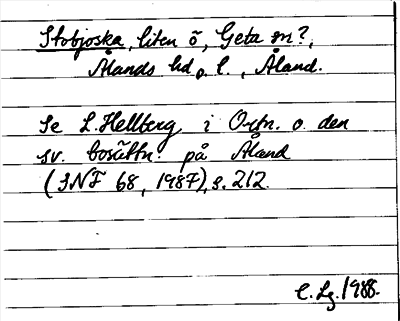 Stobjoska, liten ö, Geta sn?,
Ålands hd o. l., Åland.
Se L. Hellberg i Ortn. o. den
sv. bosättn. på Åland
(SNF 68, 1987), s. 212.
C. Lg. 1988.